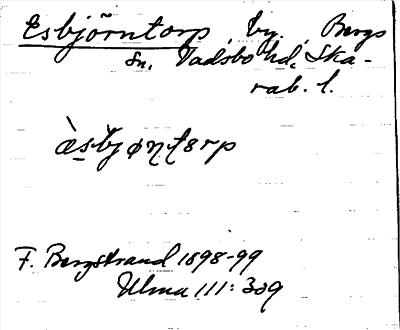 Esbjörntorp, by, Bergs
sn, Vadsbo hd, Ska-
rab. l.
æ̀sbjøṇṭorp
F. Bergstrand 1898-99
Ulma 111: 309